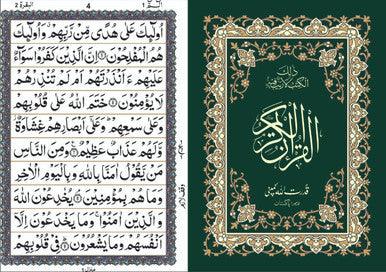 البقرة ٢
4
الٓمّٓ ١
اُولٰٓئِكَ عَلٰى هُدًى مِّنْ رَّبِّهِمْ وَاُولٰٓئِكَ
هُمُ الْمُفْلِحُوْنَ ۝ اِنَّ الَّذِيْنَ كَفَرُوْا سَوَآءٌ
عَلَيْهِمْ ءَاَنْذَرْتَهُمْ اَمْ لَمْ تُنْذِرْهُمْ
لَا يُؤْمِنُوْنَ ۝ خَتَمَ اللّٰهُ عَلٰى قُلُوْبِهِمْ
وَعَلٰى سَمْعِهِمْ وَعَلٰٓى اَبْصَارِهِمْ غِشَاوَةٌ
وَّلَهُمْ عَذَابٌ عَظِيْمٌ ۝ وَمِنَ النَّاسِ
مَنْ يَّقُوْلُ اٰمَنَّا بِاللّٰهِ وَبِالْيَوْمِ الْاٰخِرِ
وَمَا هُمْ بِمُؤْمِنِيْنَ ۝ يُخٰدِعُوْنَ اللّٰهَ
وَالَّذِيْنَ اٰمَنُوْا وَمَا يَخْدَعُوْنَ اِلَّآ
اَنْفُسَهُمْ وَمَا يَشْعُرُوْنَ ۝ فِيْ قُلُوْبِهِمْ
وقف لازم
منزل ١
ذٰلِكَ
الْكِتٰبُ لَا رَيْبَ فِيْهِ
القرآن الكريم
قدرت اللہ کمپنی
لاہور پاکستان